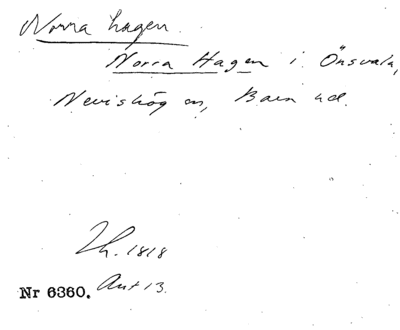 Norra hagen.
Norra Hagen i Önsvala,
Nevishög sn, Bara hd.
Lh. 1818
Nr 6360. Akt 13.